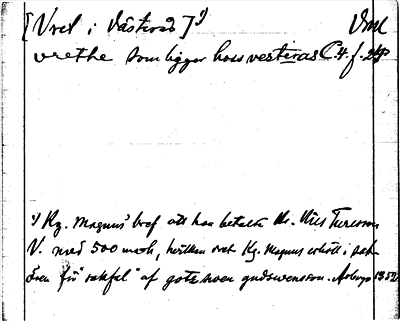 [Vret i Västerås] 1)
vrethe som ligger hoss vesteras C. 4. f.
1) Kg. Magnus' bref att han betalt Hr. Nils Turesson
V. med 500 mark, hvilken vret Kg. Magnus erhöll i
för "sakfal" af gotz swen gudswensson.